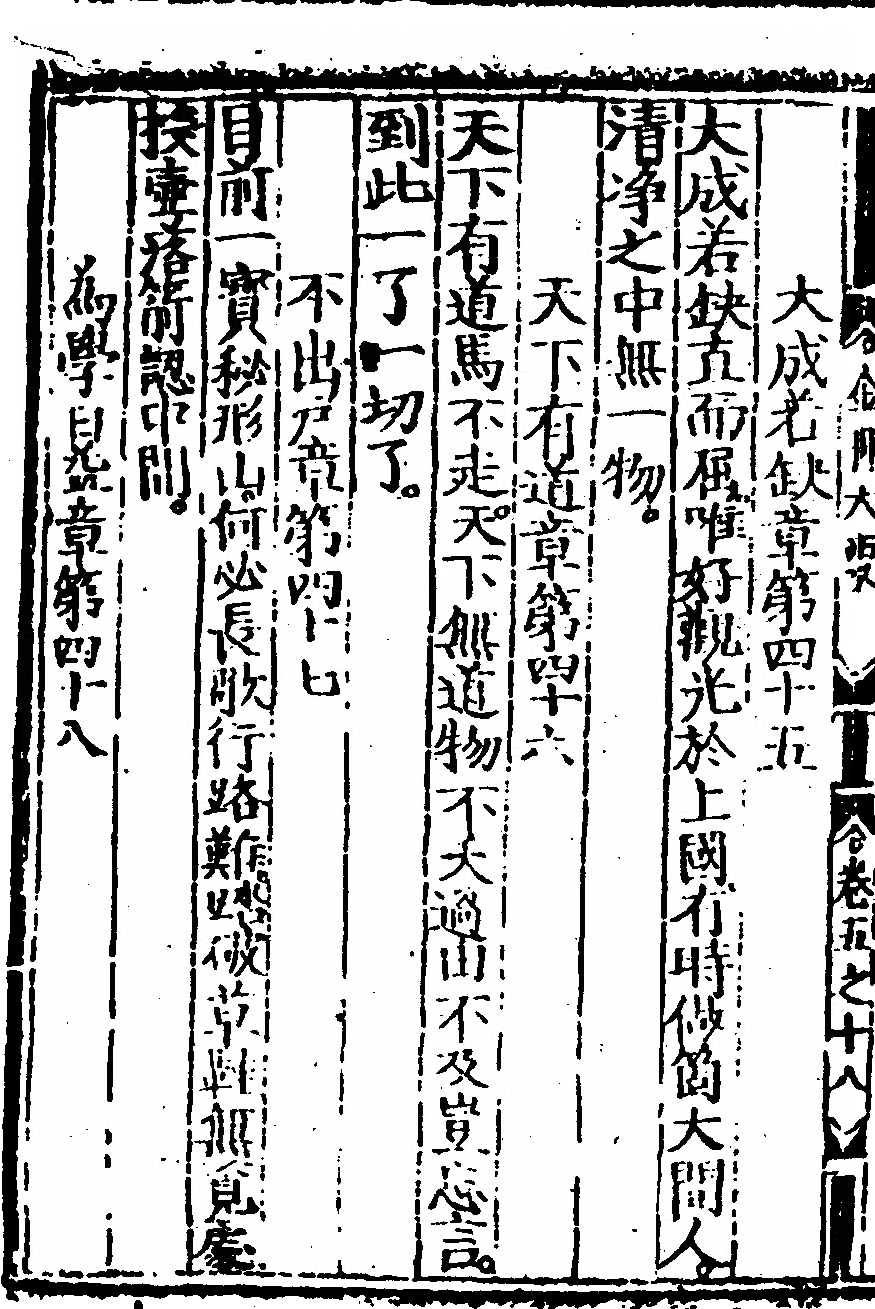 大成若缺章第四十五
大成若缺直而屈唯好觀光於上國有時做箇大閒人
清净之中無一物
天下有道章第四十六
天下有道馬不走天下無道物不大過由不及豈忘言
到此一了一切了
不出户章第四十七
目前一寶秘形山何必長歌行路難踏破草鞋無覓處
投壺落箭認中間
為學日益章第四十八
金丹大
卷五之十八